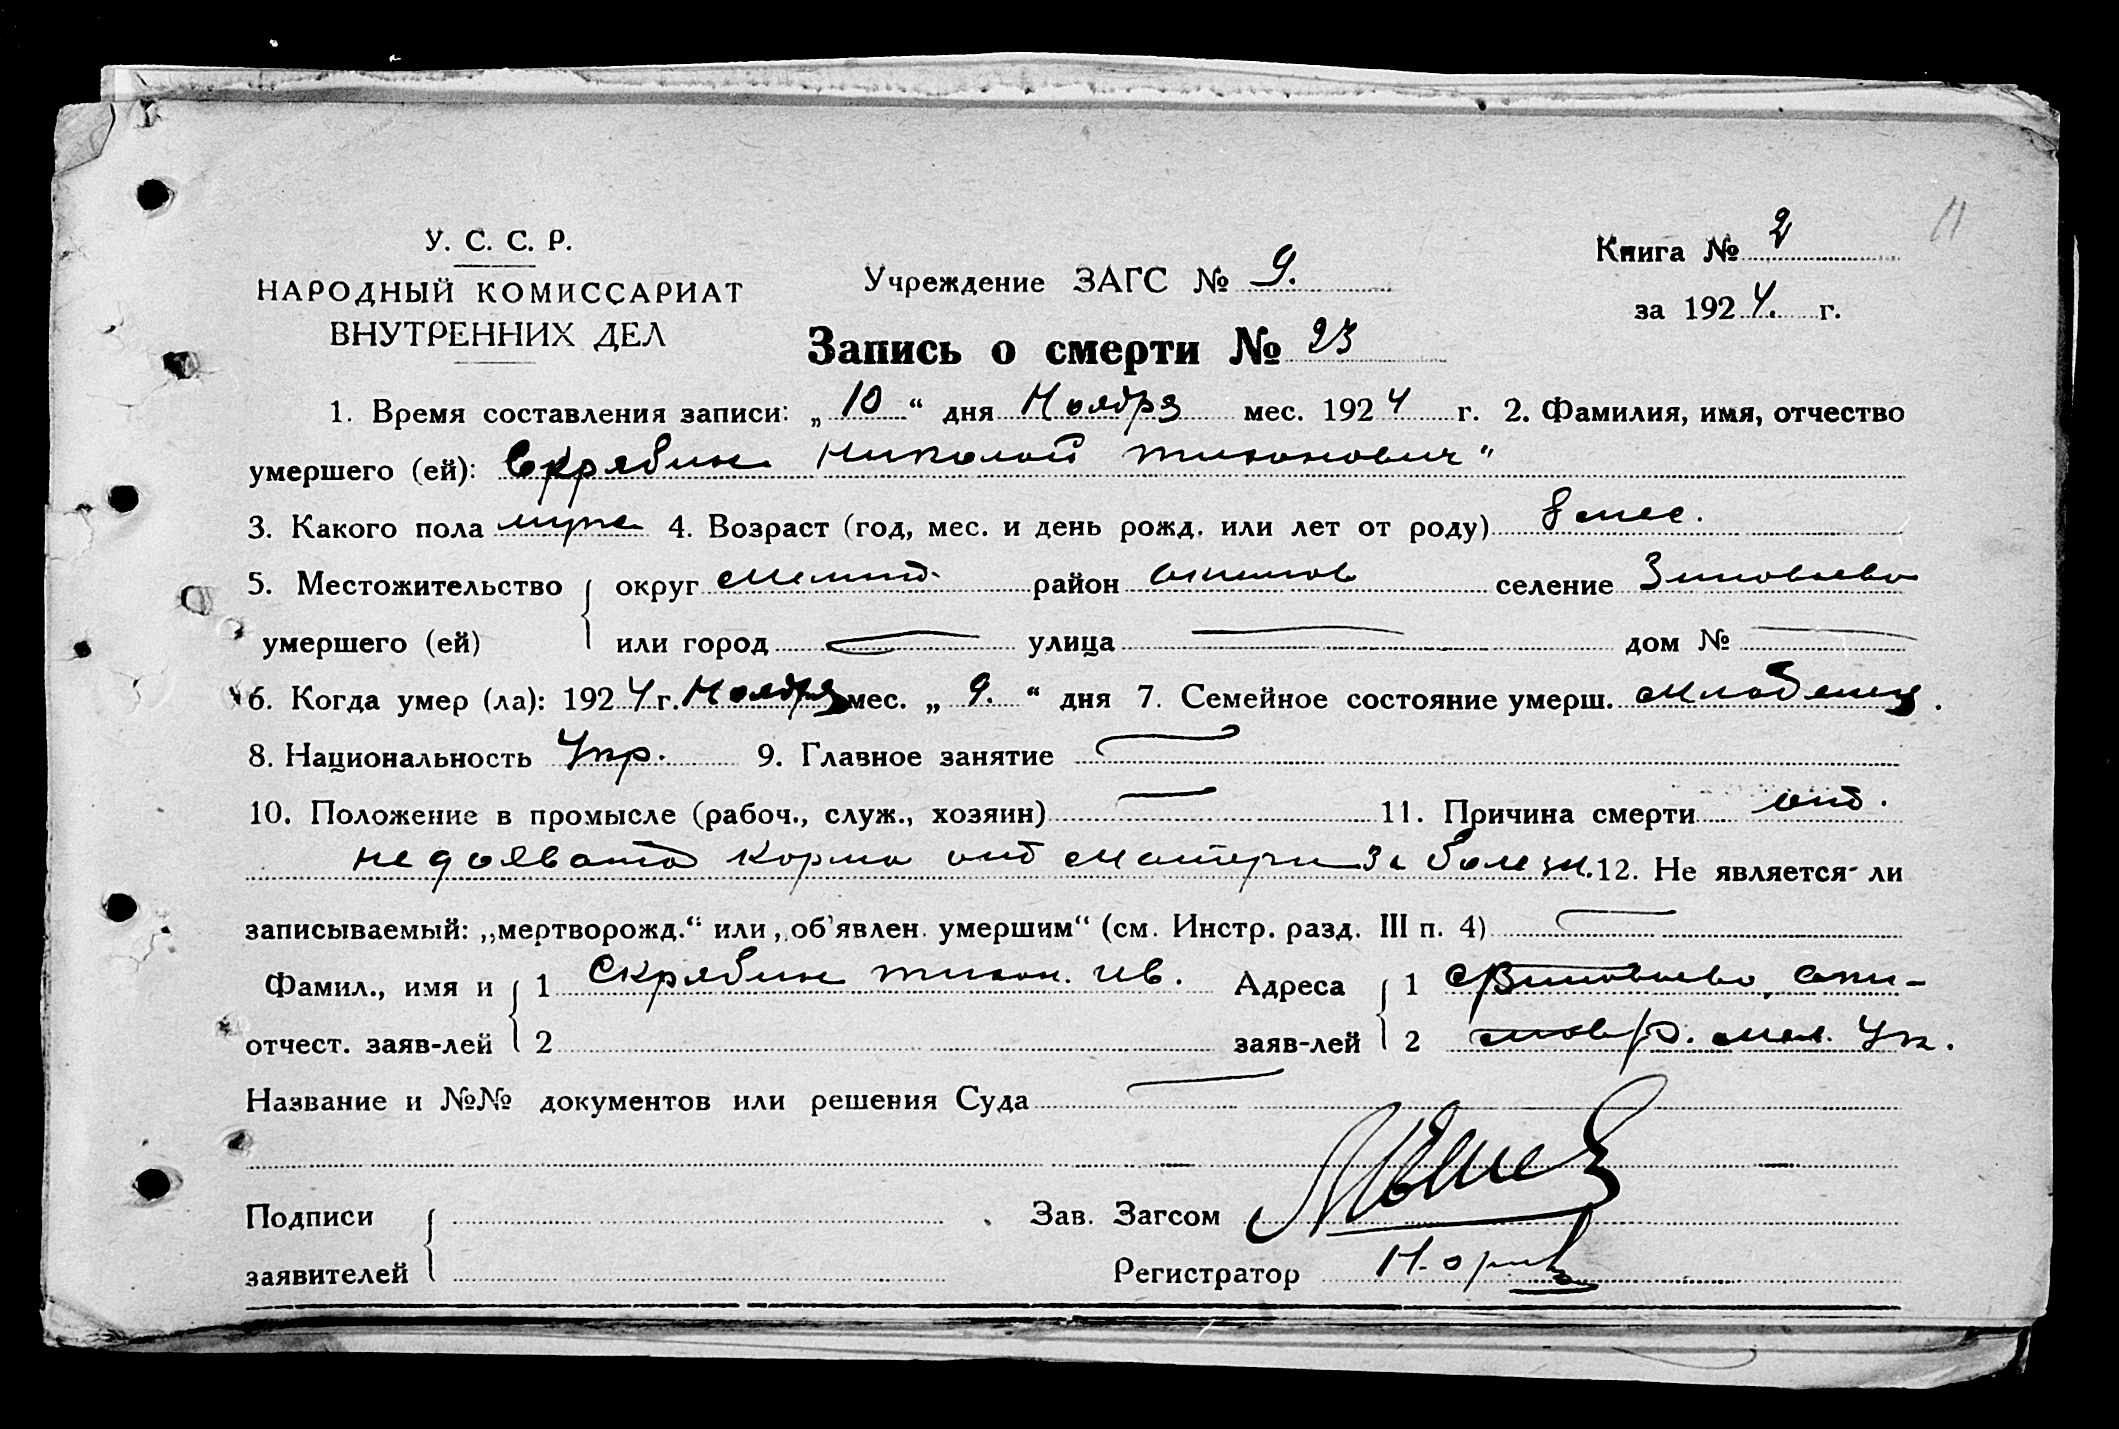 11
У. С. С. Р.
НАРОДНЫЙ КОМИССАРИАТ
ВНУТРЕННИХ ДЕЛ
Учреждение ЗАГС № 9.
Книга № 2
за 1924. г.
Запись о смерти № 23
1. Время составления записи: „10“ дня Ноября мес. 1924 г. 2. Фамилия, имя, отчество
умершего (ей): Скрябин Николай Тихонович"
3. Какого пола муж 4. Возраст (год, мес. и день рожд. или лет от роду) 8 мес.
5. Местожительство округ Мелит. район Акимов селение Зиновьево
умершего (ей) или город — улица — дом № —
6. Когда умер (ла): 1924 г. Ноября мес. „9.“ дня 7. Семейное состояние умерш. младенец.
8. Национальность Укр. 9. Главное занятие —
10. Положение в промысле (рабоч., служ., хозяин) — 11. Причина смерти от.
корма от матери за болезн. 12. Не является-ли
записываемый: „мертворожд.“ или „об'явлен. умершим“ (см. Инстр. разд. III п. 4) —
Фамил., имя и 1 Скрябин Тихон. Ив. Адреса 1 Зиновьево, Аки-
отчест. заяв-лей 2 заяв-лей 2 мов р. Мел. Ук.
Название и №№ документов или решения Суда —
Подписи Зав. Загсом
заявителей Регистратор